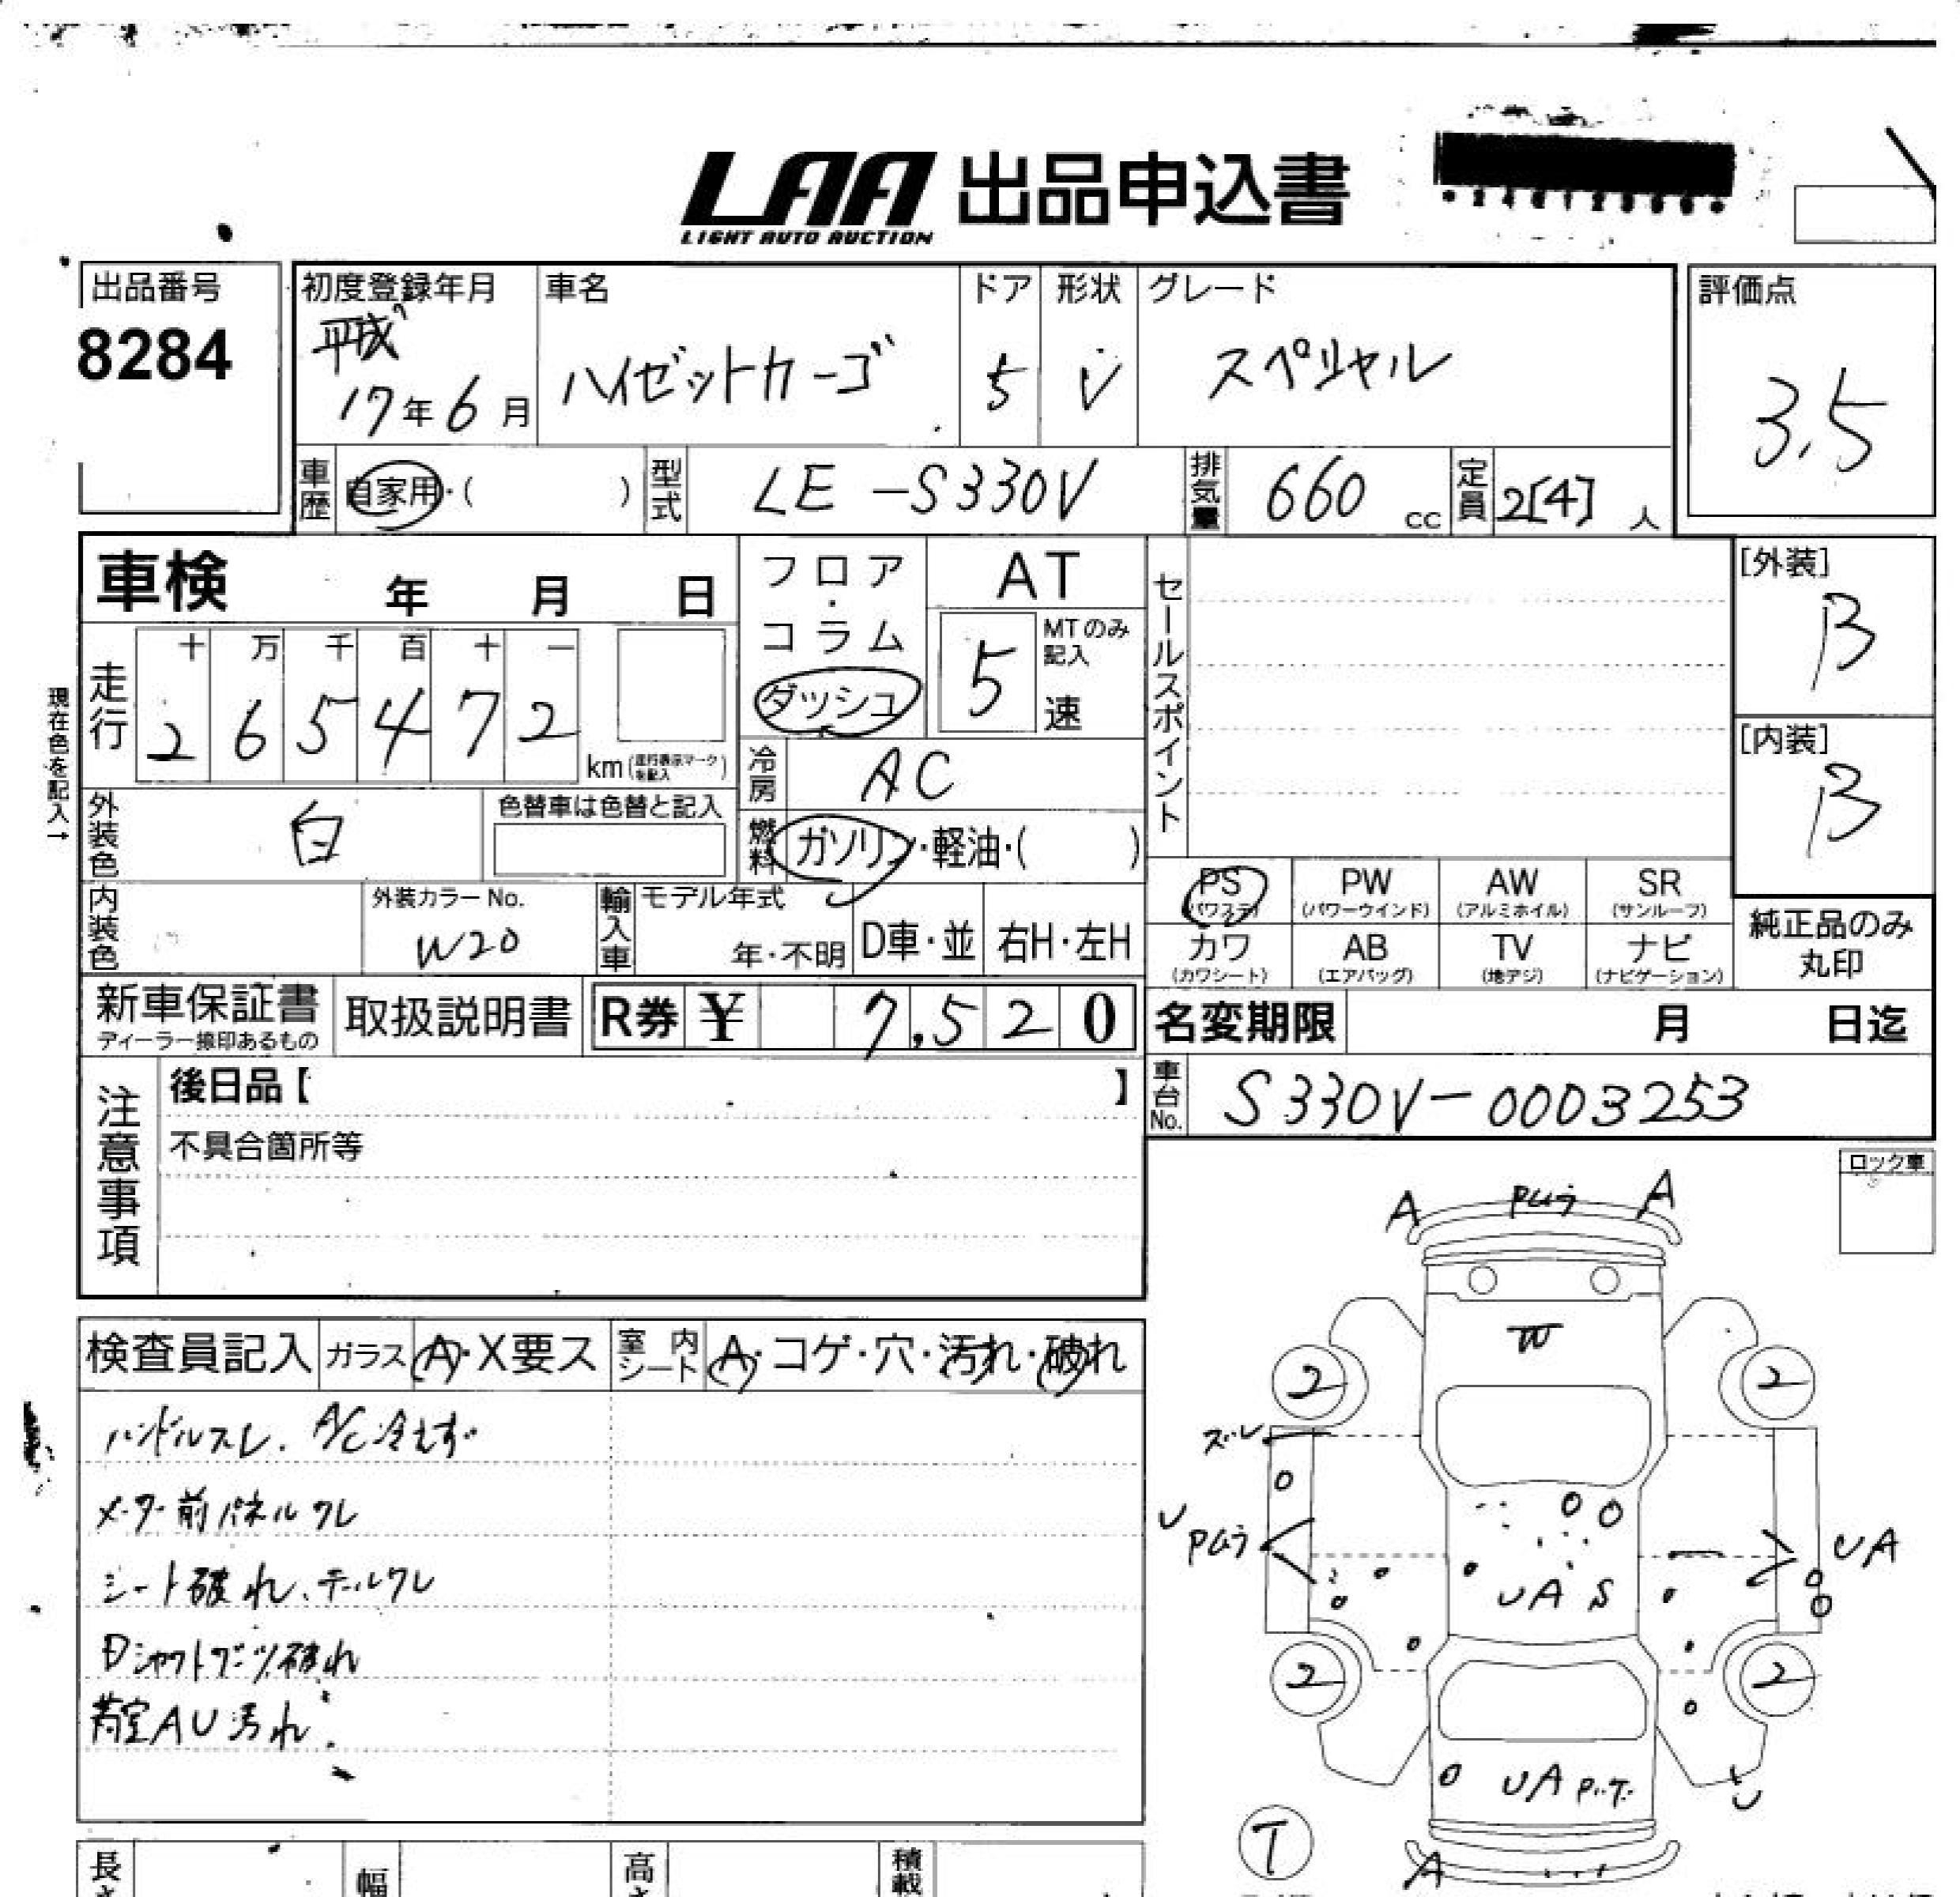 LAA 出品申込書
LIGHT AUTO AUCTION
出品番号
8284
初度登録年月
平成
17年6月
車名
ハイゼットカーゴ
ドア
5
形状
V
グレード
スペシャル
評価点
3.5
車歴 自家用・( )
型式 LE-S330V
排気量 660 cc
定員 2[4] 人
車検 年 月 日
フロア・コラム
ダッシュ
AT
5 MTのみ記入
速
セールスポイント
[外装]
B
[内装]
B
現在色を記入→
走行
十 万 千 百 十 一
2 6 5 4 7 2
km(走行表示マークを記入)
冷房 AC
外装色 白
色替車は色替と記入
燃料 ガソリン・軽油・( )
内装色
外装カラーNo.
W20
輸入車 モデル年式
年・不明
D車・並
右H・左H
PS
(パワステ)
PW
(パワーウインド)
AW
(アルミホイル)
SR
(サンルーフ)
カワ
(カワシート)
AB
(エアバッグ)
TV
(地デジ)
ナビ
(ナビゲーション)
純正品のみ
丸印
新車保証書
ディーラー捺印あるもの
取扱説明書
R券 ¥ 7,520
名変期限 月 日迄
車台No. S330V-0003253
注意事項
後日品【 】
不具合箇所等
ロック車
検査員記入 ガラス A・X要ス 室内シート A・コゲ・穴・汚れ・破れ
ハンドルスレ. A/C冷えず
メーター前パネルワレ
シート破れ、テールワレ
Dシャフトブーツ破れ
荷室AU汚れ
A
A
W
2
2
ズレ
U
UA
UA S
2
2
UA
U
T
A
長さ
幅
高さ
積載